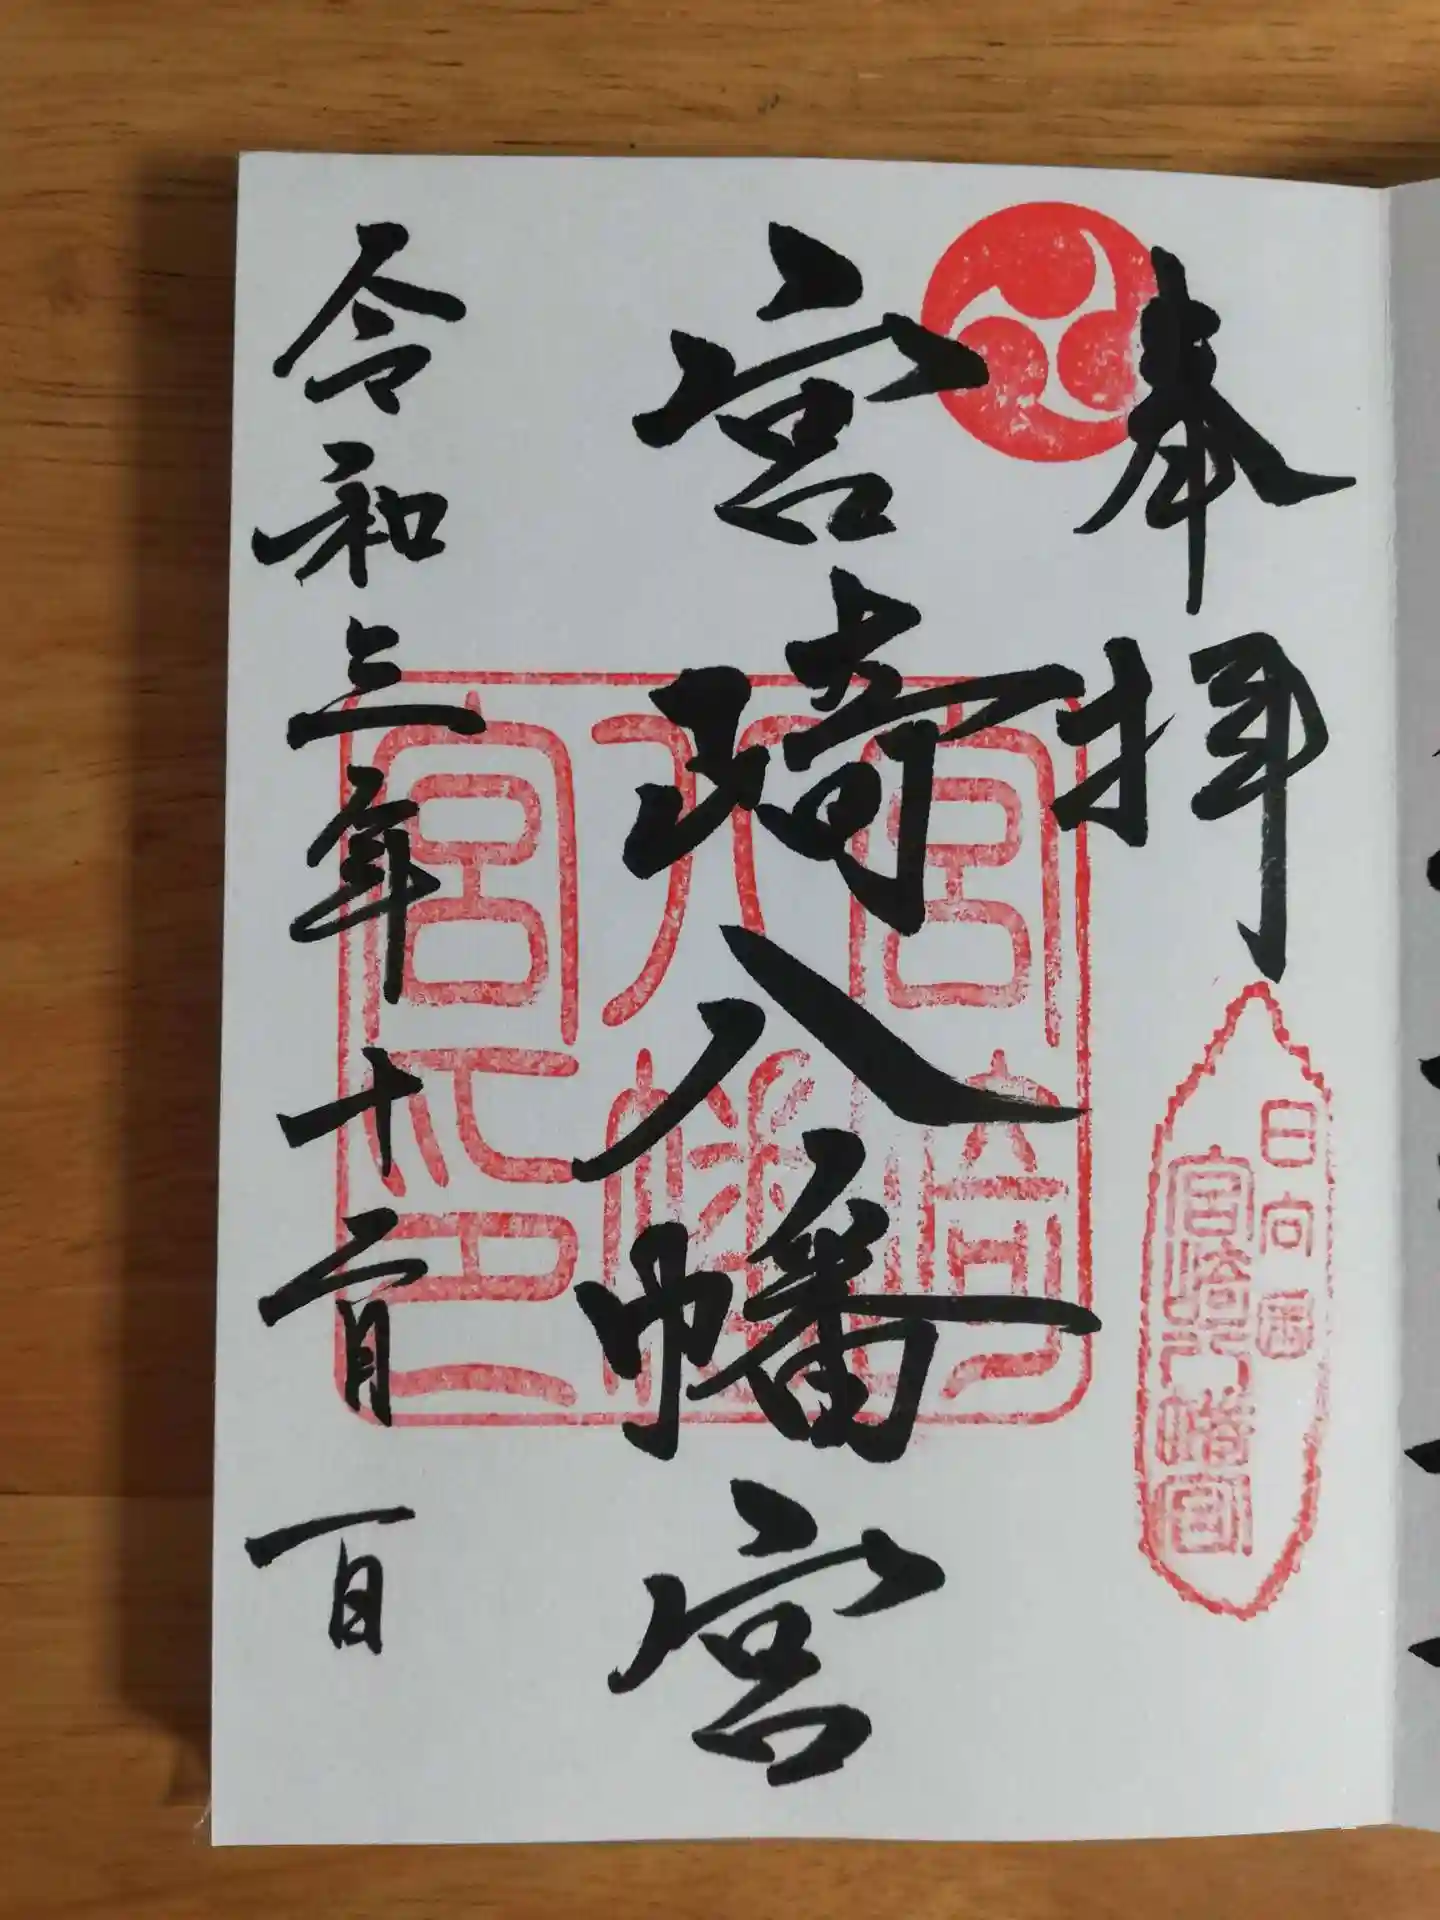 奉拝
日向国
宮崎八幡宮
宮崎八幡宮
宮崎八幡宮印
令和三年十二月一日